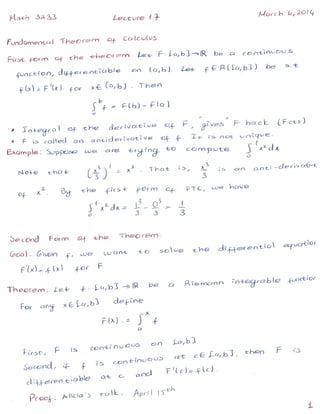 Math 3233 Lecture 17 March 6, 2014
Fundamental Theorem of Calculus
First form of the theorem Let F: [a,b]→ℝ be a continuous
function, differentiable on (a,b). Let f ∈ R([a,b]) be s.t
f(x) = F'(x) for x ∈ (a,b). Then
∫_a^b f = F(b) - F(a)
* Integral of the derivative of F, "gives" F back (Fcts)
* F is called an antiderivative of f. It is not unique.
Example: Suppose we are trying to compute ∫_0^1 x² dx
Note that (x³/3)' = x². That is, x³/3 is an anti-derivative
of x². By the first form of FTC, we have
∫_0^1 x² dx = 1³/3 - 0³/3 = 1/3
Second Form of the Theorem:
Goal: Given f, we want to solve the differential equation
F'(x) = f(x) for F
Theorem: Let f: [a,b]→ℝ be a Riemann integrable function
For any x ∈ [a,b] define
F(x) := ∫_a^x f
First, F is continuous on [a,b]
Second, if f is continuous at c ∈ [a,b], then F is
differentiable at c and F'(c) = f(c).
Proof: Alicia's talk. April 15th
1